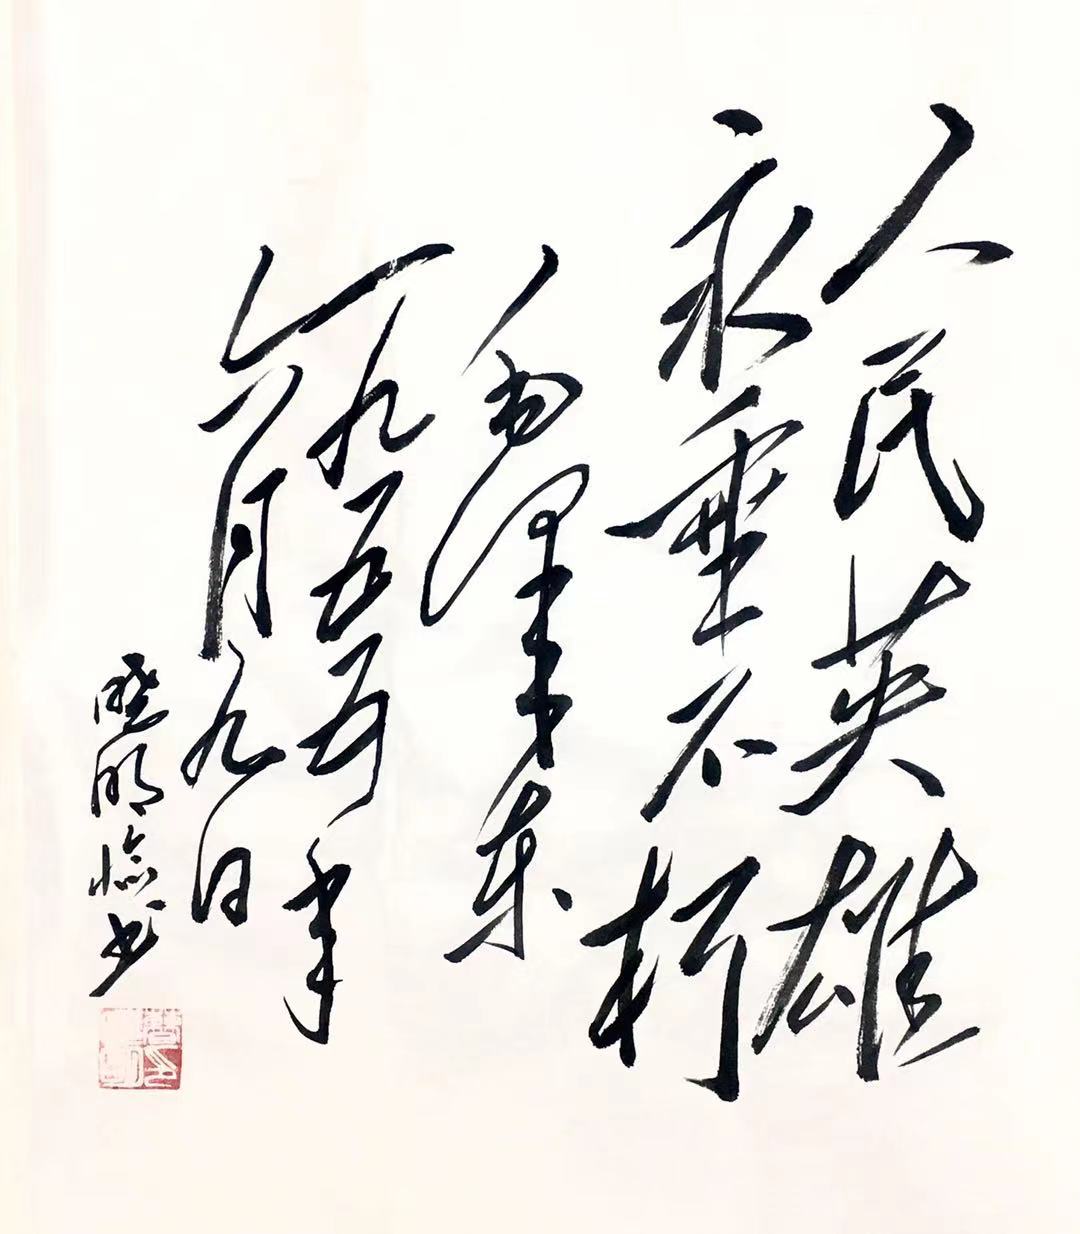 人民英雄
永垂不朽
毛泽东
一九五五年
六月九日
晓明临书